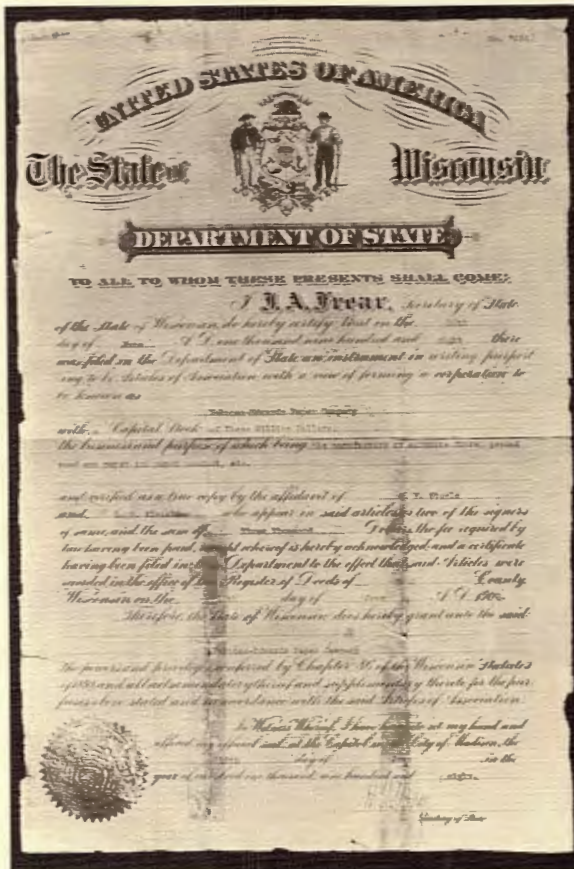 UNITED STATES OF AMERICA
The State of Wisconsin
DEPARTMENT OF STATE
TO ALL TO WHOM THESE PRESENTS SHALL COME:
I J. A. Frear, Secretary of State
of the State of Wisconsin, do hereby certify that on the
day of June A.D. one thousand nine hundred and there
was filed in the Department of State an instrument in writing purport
ing to be Articles of Association with a view of forming a corporation to
be known as
Nekoosa-Edwards Paper Company
with Capital Stock of Three Million Dollars,
the business and purpose of which being the manufacture of
wood and paper etc.
and verified as a true copy by the affidavit of
and who appear in said articles as two of the signers
of same, and the sum of Three Thousand Dollars the fee required by
law having been paid, receipt whereof is hereby acknowledged and a certificate
having been filed in this Department to the effect that said Articles were
recorded in the office of the Register of Deeds of County
Wisconsin on the day of June A.D. 190
Therefore, the State of Wisconsin does hereby grant unto the said
Nekoosa-Edwards Paper Company
the powers and privileges conferred by Chapter 86 of the Wisconsin Statutes
of 1898 and all acts amendatory thereof and supplementary thereto for the pur
poses above stated and in accordance with the said Articles of Association.
In Witness Whereof, I have hereunto set my hand and
affixed my official seal, at the Capitol in the City of Madison, the
day of in the
year of our Lord one thousand, nine hundred and eight.
Secretary of State